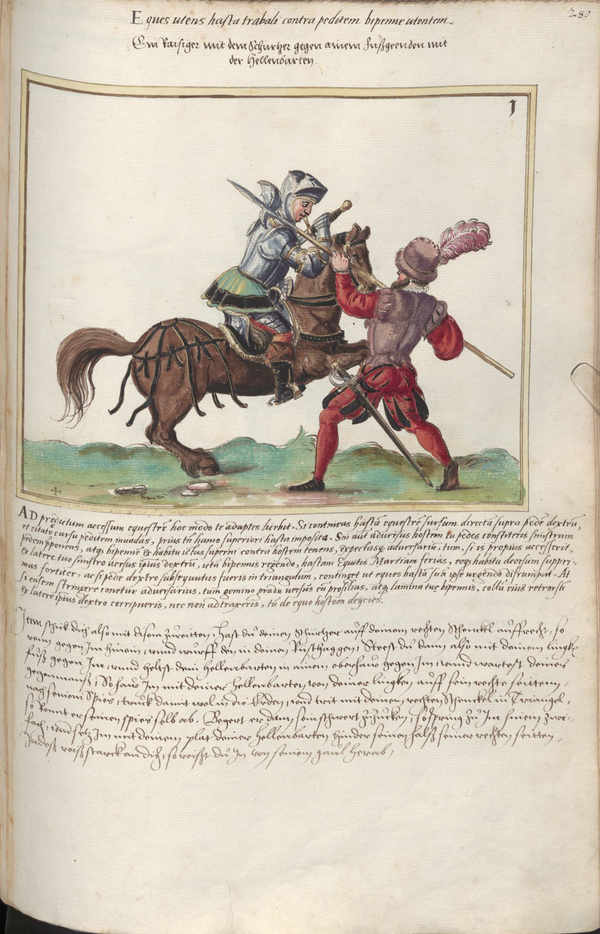 280
Eques utens hasta trabali contra peditem bipenne utentem.
Ein Raisiger mit dem Schürtzer gegen ainem Fußgeenden mit
der Hellenbarten.
1
AD praedictum accessum equestrē hoc modo te adaptes licebit. Si contineas hastā equestrē sursum directā supra pedē dextrū,
et citato cursu peditem invadas, prius tn̄ hamo superiori hasta imposita. Sin aut adversus hostem tu pedes constiteris sinistrum
pedem pponens, atq bipennē ex habitu ictus superni contra hostem tenens, expectusq adversariū, tum, si is propius accesserit,
ex latere tuo sinistro versus ipius dextrū, ictu bipennis regendo, hastam Equitis Martiam ferias, eoq habitu deorsum suppri-
mas fortiter, ac si pede dextro subsequutus fueris in triangulum, continget ut eques hastā suā ipse urgendo disrumpat. At
si ensem stringere conetur adversarius, tum gemino gradu versus eū prosilias, atq lamina tuę bipennis, collū eius retrorsū
ex latere ipius dextro corripueris, nec non adtraxeris, tū de equo hostem deijcies.
Item schick dich also mit disem zureitten, hast du deinen Schürtzer auff deinem rechten Schenckel auffrecht, so
renn gegen Im hinein, und würff den in deinen Rüsthaggen, Steest du dann also mit deinem lingken
fuß gegen Im, unnd heltest dein Hellenbarten in ainem oberhaw gegen Im, unnd wartest deines
gegenmanns, So haw Im mit deiner Hellenbarten, von deiner lingken auff sein rechte seitten,
nach seinem Spies, truck damit wol in die boden, und trit mit deinem rechten Schenckel in Triangel,
so rennt er seinen spies selb ab. Begert er dann sein schwert zuzucken, so spring zu Im hinein zwi-
fach, und setz Im mit dem plat deiner Hellenbarten hinder seinen halß seiner rechten seitten,
Indeß reiß starck an dich, so reißt du In von seinem gaul herab.